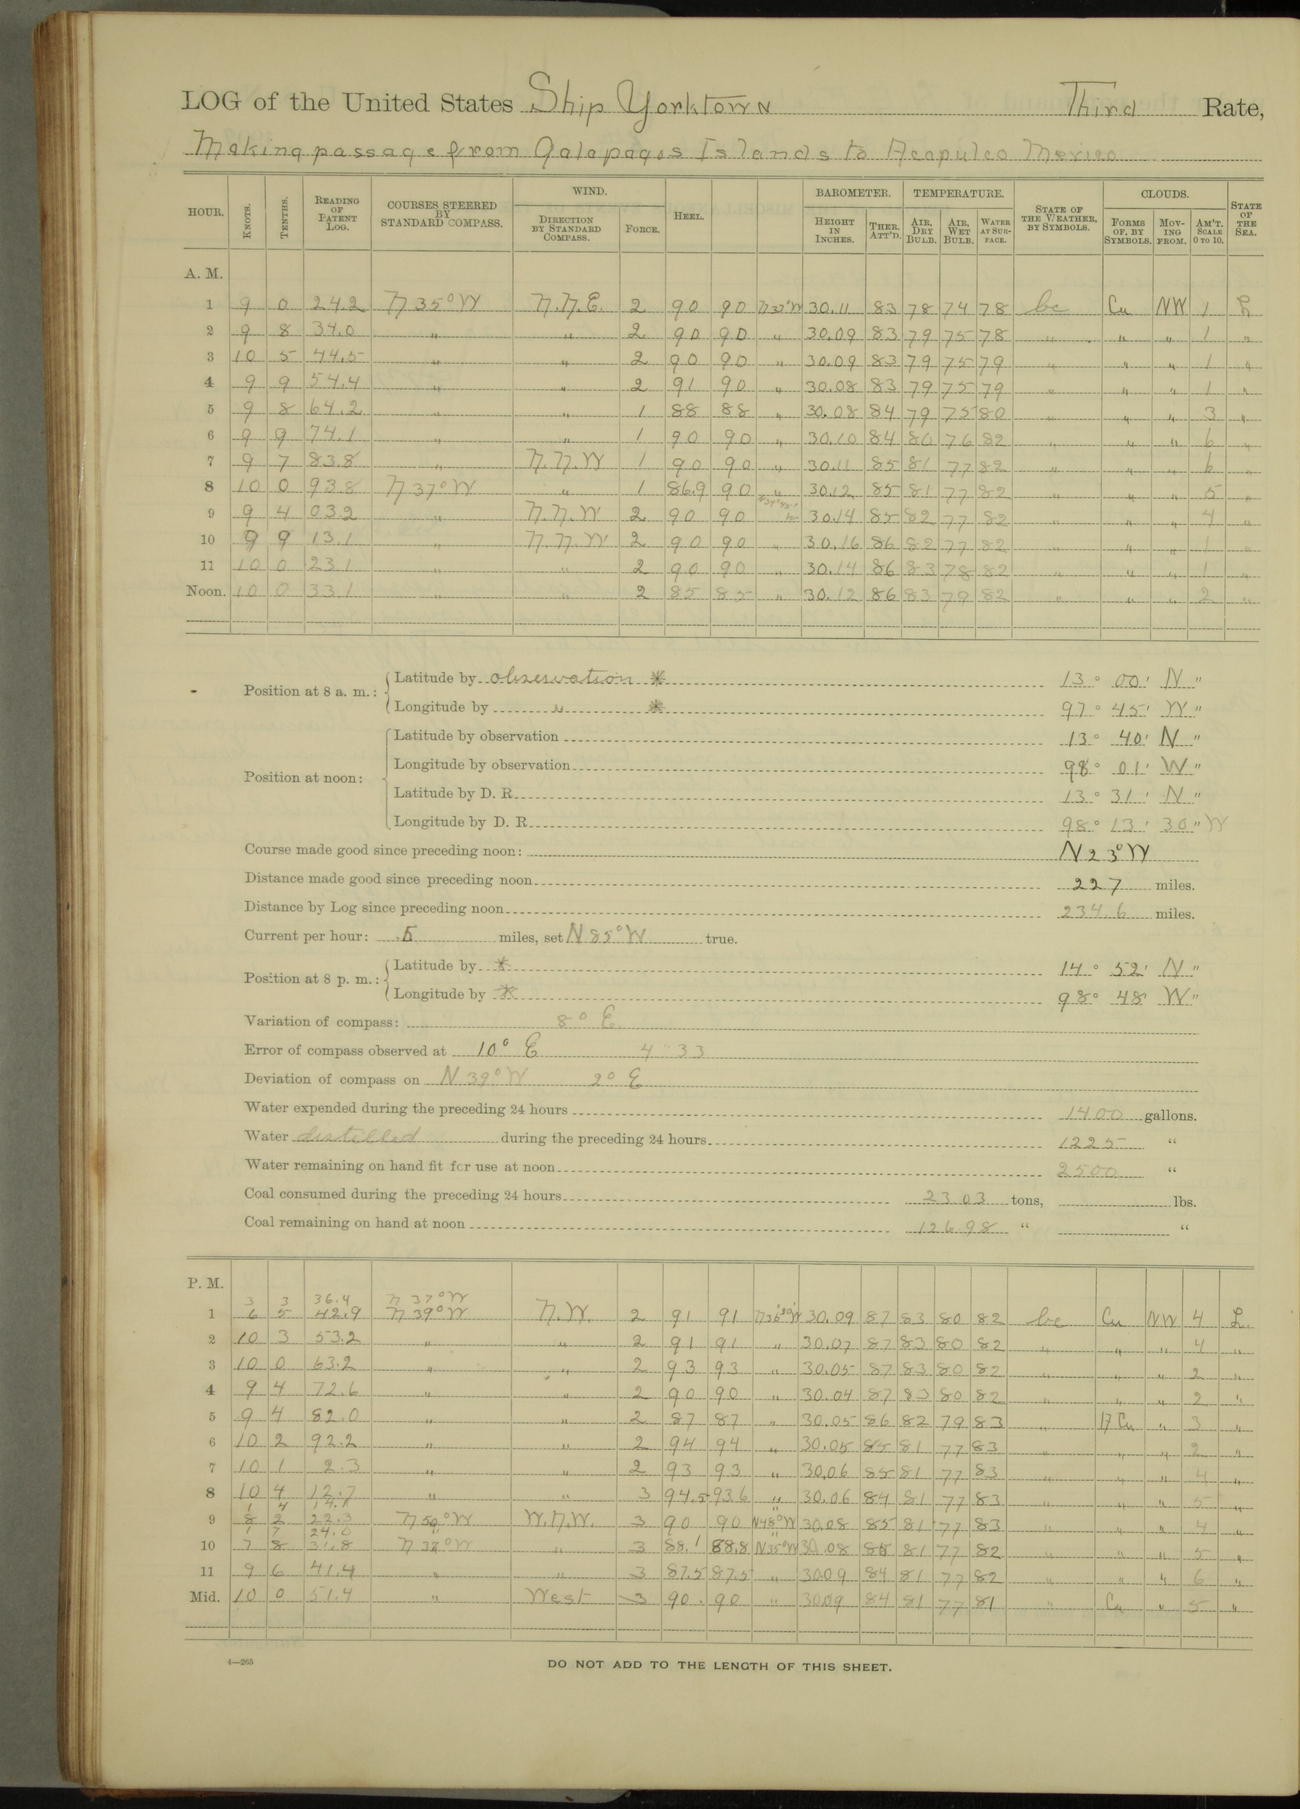 LOG of the United States Ship Yorktown Third Rate,
Making passage from Galapagos Islands to Acapulco Mexico
HOUR. KNOTS. TENTHS. READING OF PATENT LOG. COURSES STEERED BY STANDARD COMPASS. WIND. DIRECTION BY STANDARD COMPASS. FORCE. HEEL. BAROMETER. HEIGHT IN INCHES. THER. ATT'D. TEMPERATURE. AIR, DRY BULB. AIR, WET BULB. WATER AT SURFACE. STATE OF THE WEATHER, BY SYMBOLS. CLOUDS. FORMS OF, BY SYMBOLS. MOVING FROM. AM'T. SCALE 0 TO 10. STATE OF THE SEA.
A. M.
1 9 0 24.2 N 35° W N.N.E. 2 90 90 30.11 83 78 74 78 bc Cu NW 1 L
2 9 8 34.0 " " 2 90 90 " 30.09 83 79 75 78 " " " 1 "
3 10 5 44.5 " " 2 90 90 " 30.09 83 79 75 79 " " " 1 "
4 9 9 54.4 " " 2 91 90 " 30.08 83 79 75 79 " " " 1 "
5 9 8 64.2 " " 1 88 88 " 30.08 84 79 75 80 " " " 3 "
6 9 9 74.1 " " 1 90 90 " 30.10 84 80 76 82 " " " 6 "
7 9 7 83.8 " N.N.W 1 90 90 " 30.11 85 81 77 82 " " " 6 "
8 10 0 93.8 N 37° W " 1 86.9 90 " 30.12 85 81 77 82 " " " 5 "
9 9 4 03.2 " N.N.W 2 90 90 30.14 85 82 77 82 " " " 4 "
10 9 9 13.1 " N.N.W 2 90 90 " 30.16 86 82 77 82 " " " 1 "
11 10 0 23.1 " " 2 90 90 " 30.14 86 83 78 82 " " " 1 "
Noon. 10 0 33.1 " " 2 85 85 " 30.12 86 83 79 82 " " " 2 "
Position at 8 a. m.: Latitude by observation * 13° 00' N "
Longitude by " * 97° 45' W "
Position at noon: Latitude by observation 13° 40' N "
Longitude by observation 98° 01' W "
Latitude by D. R. 13° 31' N "
Longitude by D. R. 98° 13' 30" W
Course made good since preceding noon: N 23° W
Distance made good since preceding noon 227 miles.
Distance by Log since preceding noon 234.6 miles.
Current per hour: .5 miles, set N 85° W true.
Position at 8 p. m.: Latitude by * 14° 52' N "
Longitude by * 98° 48' W "
Variation of compass: 8° E
Error of compass observed at 10° E 4 33
Deviation of compass on N 39° W 2° E
Water expended during the preceding 24 hours 1400 gallons.
Water distilled during the preceding 24 hours 1225 "
Water remaining on hand fit for use at noon 2500 "
Coal consumed during the preceding 24 hours 23.03 tons, lbs.
Coal remaining on hand at noon 126.98 " "
P. M.
3 3 36.4 N 37° W
1 6 5 42.9 N 39° W N.W. 2 91 91 30.09 87 83 80 82 bc Cu NW 4 L
2 10 3 53.2 " " 2 91 91 " 30.07 87 83 80 82 " " " 4 "
3 10 0 63.2 " " 2 93 93 " 30.05 87 83 80 82 " " " 2 "
4 9 4 72.6 " " 2 90 90 " 30.04 87 83 80 82 " " " 2 "
5 9 4 82.0 " " 2 87 87 " 30.05 86 82 79 83 " Cu " 3 "
6 10 2 92.2 " " 2 94 94 " 30.05 85 81 77 83 " " " 2 "
7 10 1 2.3 " " 2 93 93 " 30.06 85 81 77 83 " " " 4 "
8 10 4 12.7 " " 3 94.5 93.6 " 30.06 84 81 77 83 " " " 5 "
1 4 14.1
9 8 2 22.3 N 50° W W.N.W. 3 90 90 N48°W 30.08 85 81 77 83 " " " 4 "
1 7 24.0 "
10 7 8 31.8 N 38° W " 3 88.1 88.8 N35°W 30.08 85 81 77 82 " " " 5 "
11 9 6 41.4 " " 3 87.5 87.5 " 30.09 84 81 77 82 " " " 6 "
Mid. 10 0 51.4 " West 3 90. 90 " 30.09 84 81 77 81 " Cu " 5 "
4—265
DO NOT ADD TO THE LENGTH OF THIS SHEET.